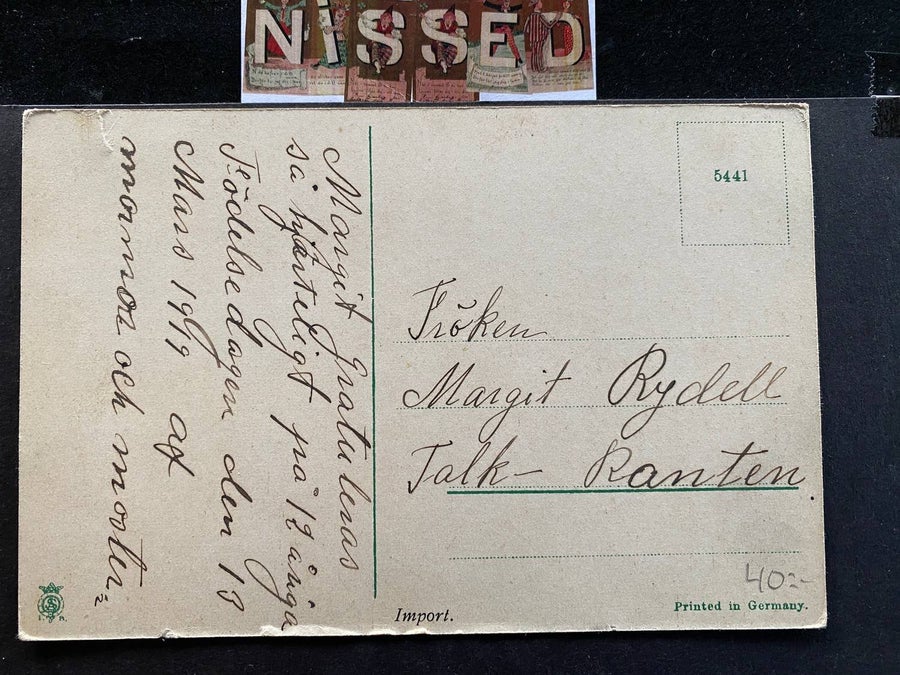 NiSSED
Margit Gratuleras
så hjärteligt på 12 åriga
Födelsedagen den 13
Mars 1919 af
mormor och moster
5441
Fröken
Margit Rydell
Talk-Kanten
Import.
Printed in Germany.
40:-